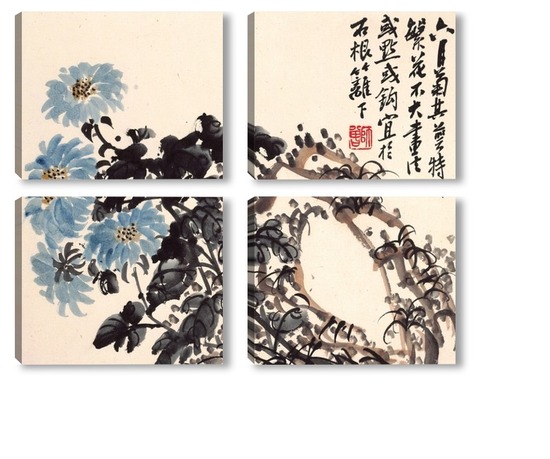 六月菊其葉特
繁花不大畫法
或點或鈎宜於
石根竹籬下
師曾